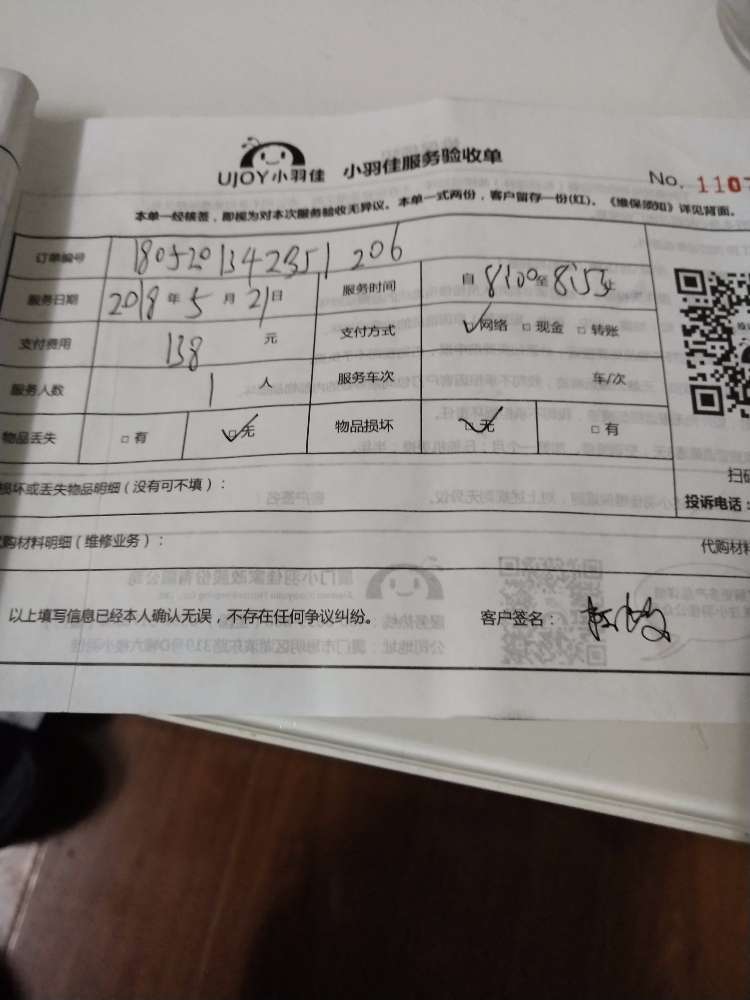 UJOY小羽佳 小羽佳服务验收单
No. 1107
本单一经核签，即视为对本次服务验收无异议。本单一式两份，客户留存一份(红)。《维保须知》详见背面。
订单编号 1805201342351206
服务日期 2018年5月21日 服务时间 自8:00至8:53止
支付费用 138元 支付方式 ☑网络 □现金 □转账
服务人数 1人 服务车次 车/次
物品丢失 □有 ☑无 物品损坏 ☑无 □有
损坏或丢失物品明细（没有可不填）： 扫码
投诉电话：
代购材料明细（维修业务）： 代购材料
以上填写信息已经本人确认无误，不存在任何争议纠纷。 客户签名：